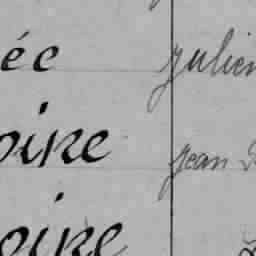 ée Julien
oire Jean
oire